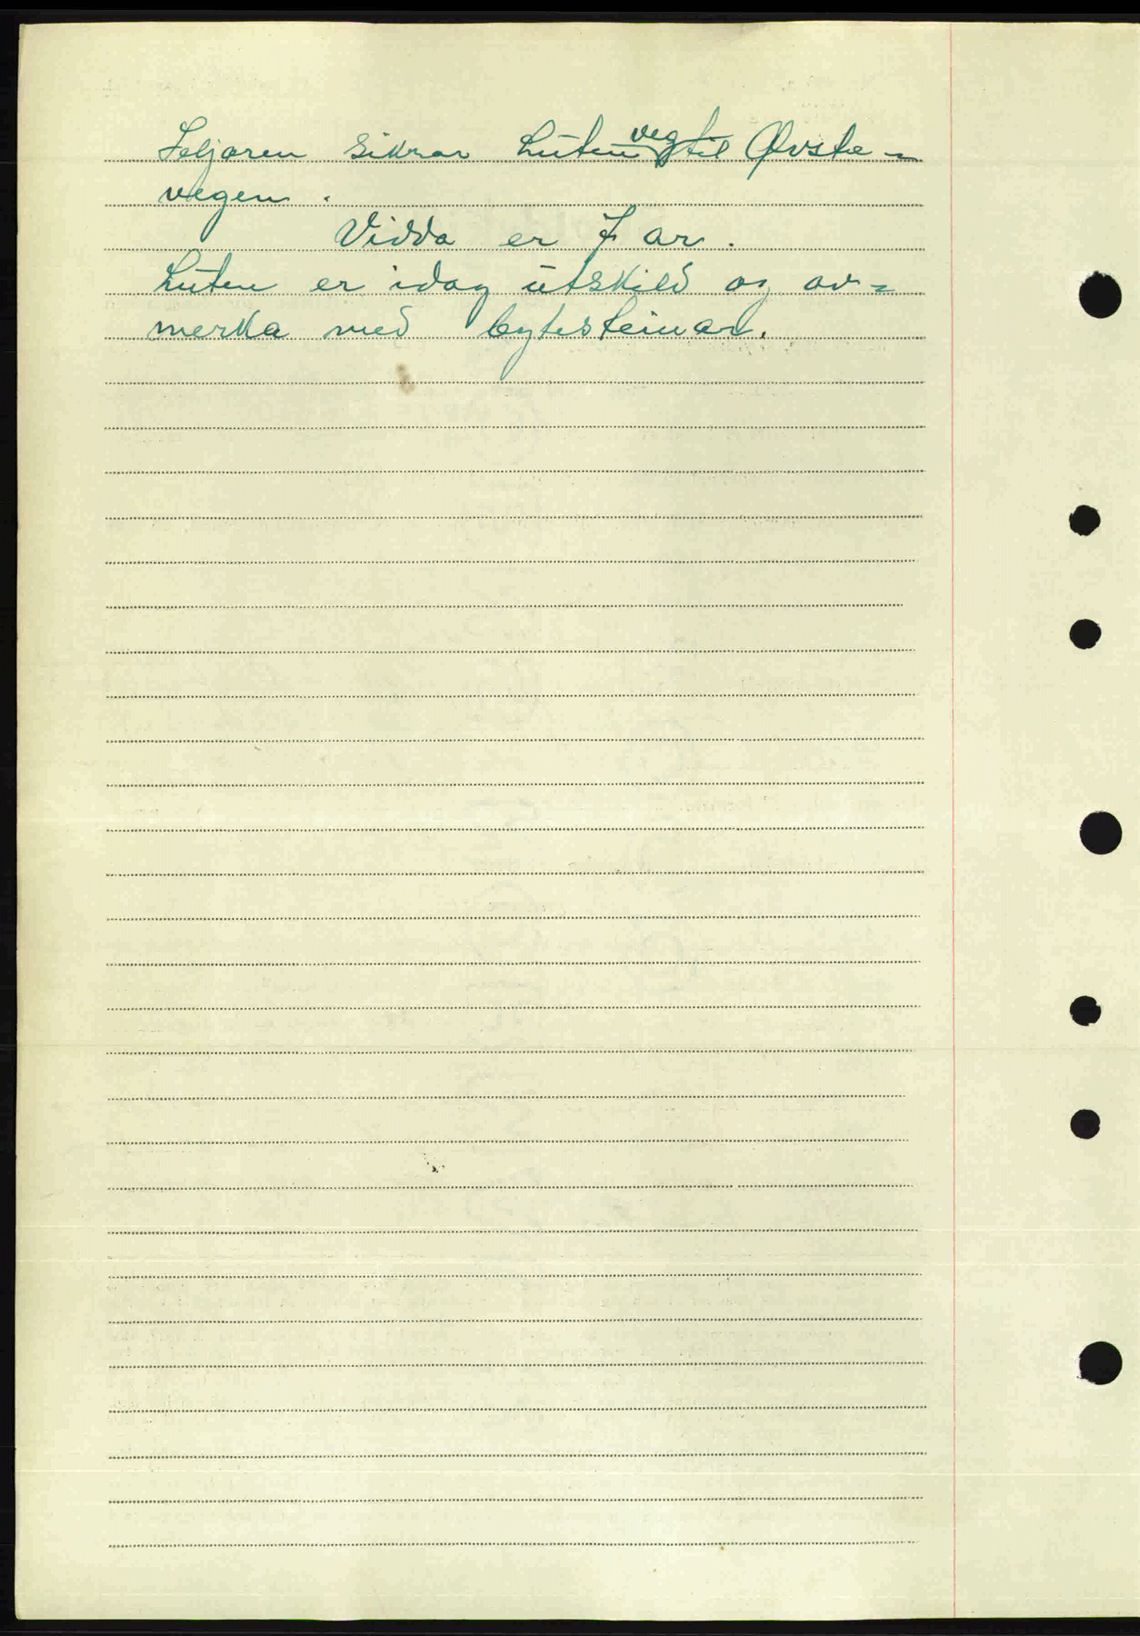 Seljaren sikrar luten veg til Øvste-
vegen.
Vidda er 7 ar.
Luten er idag utskild og av=
merka med bytesteinar.